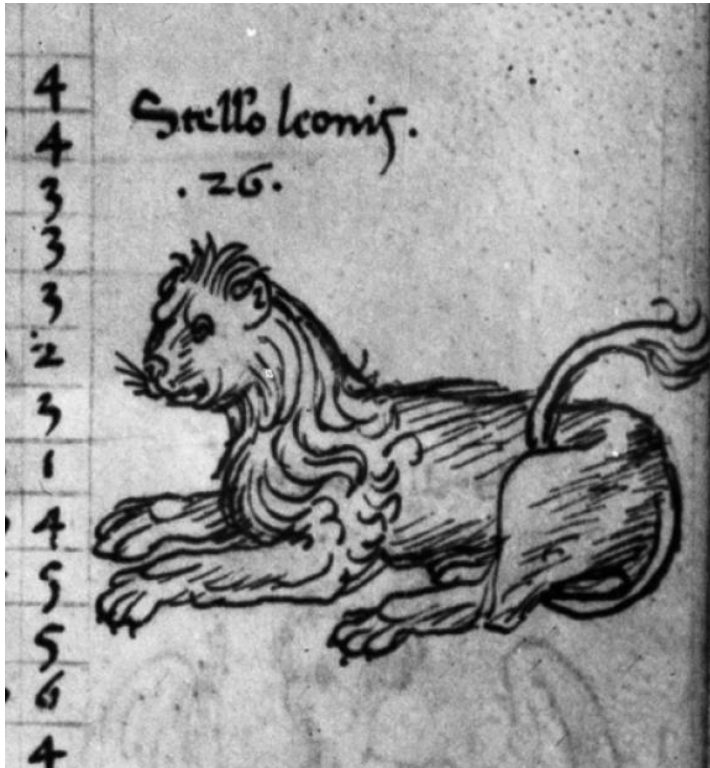 4
4
3
3
3
2
3
1
4
5
5
6
4
Stello leonis.
.26.